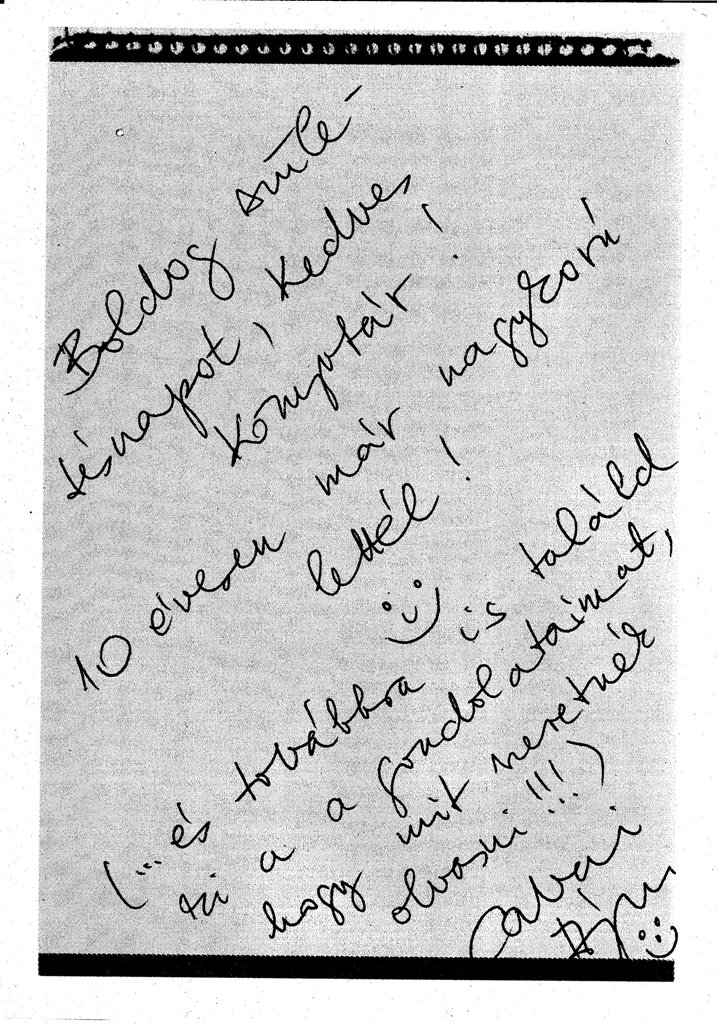 Boldog szüle-
tésnapot, kedves
Könyvtár!
10 évesen már nagykorú
lettél!
(...és továbbra is találd
ki a a gondolataimat,
hogy mit szeretnék
olvasni!!!)